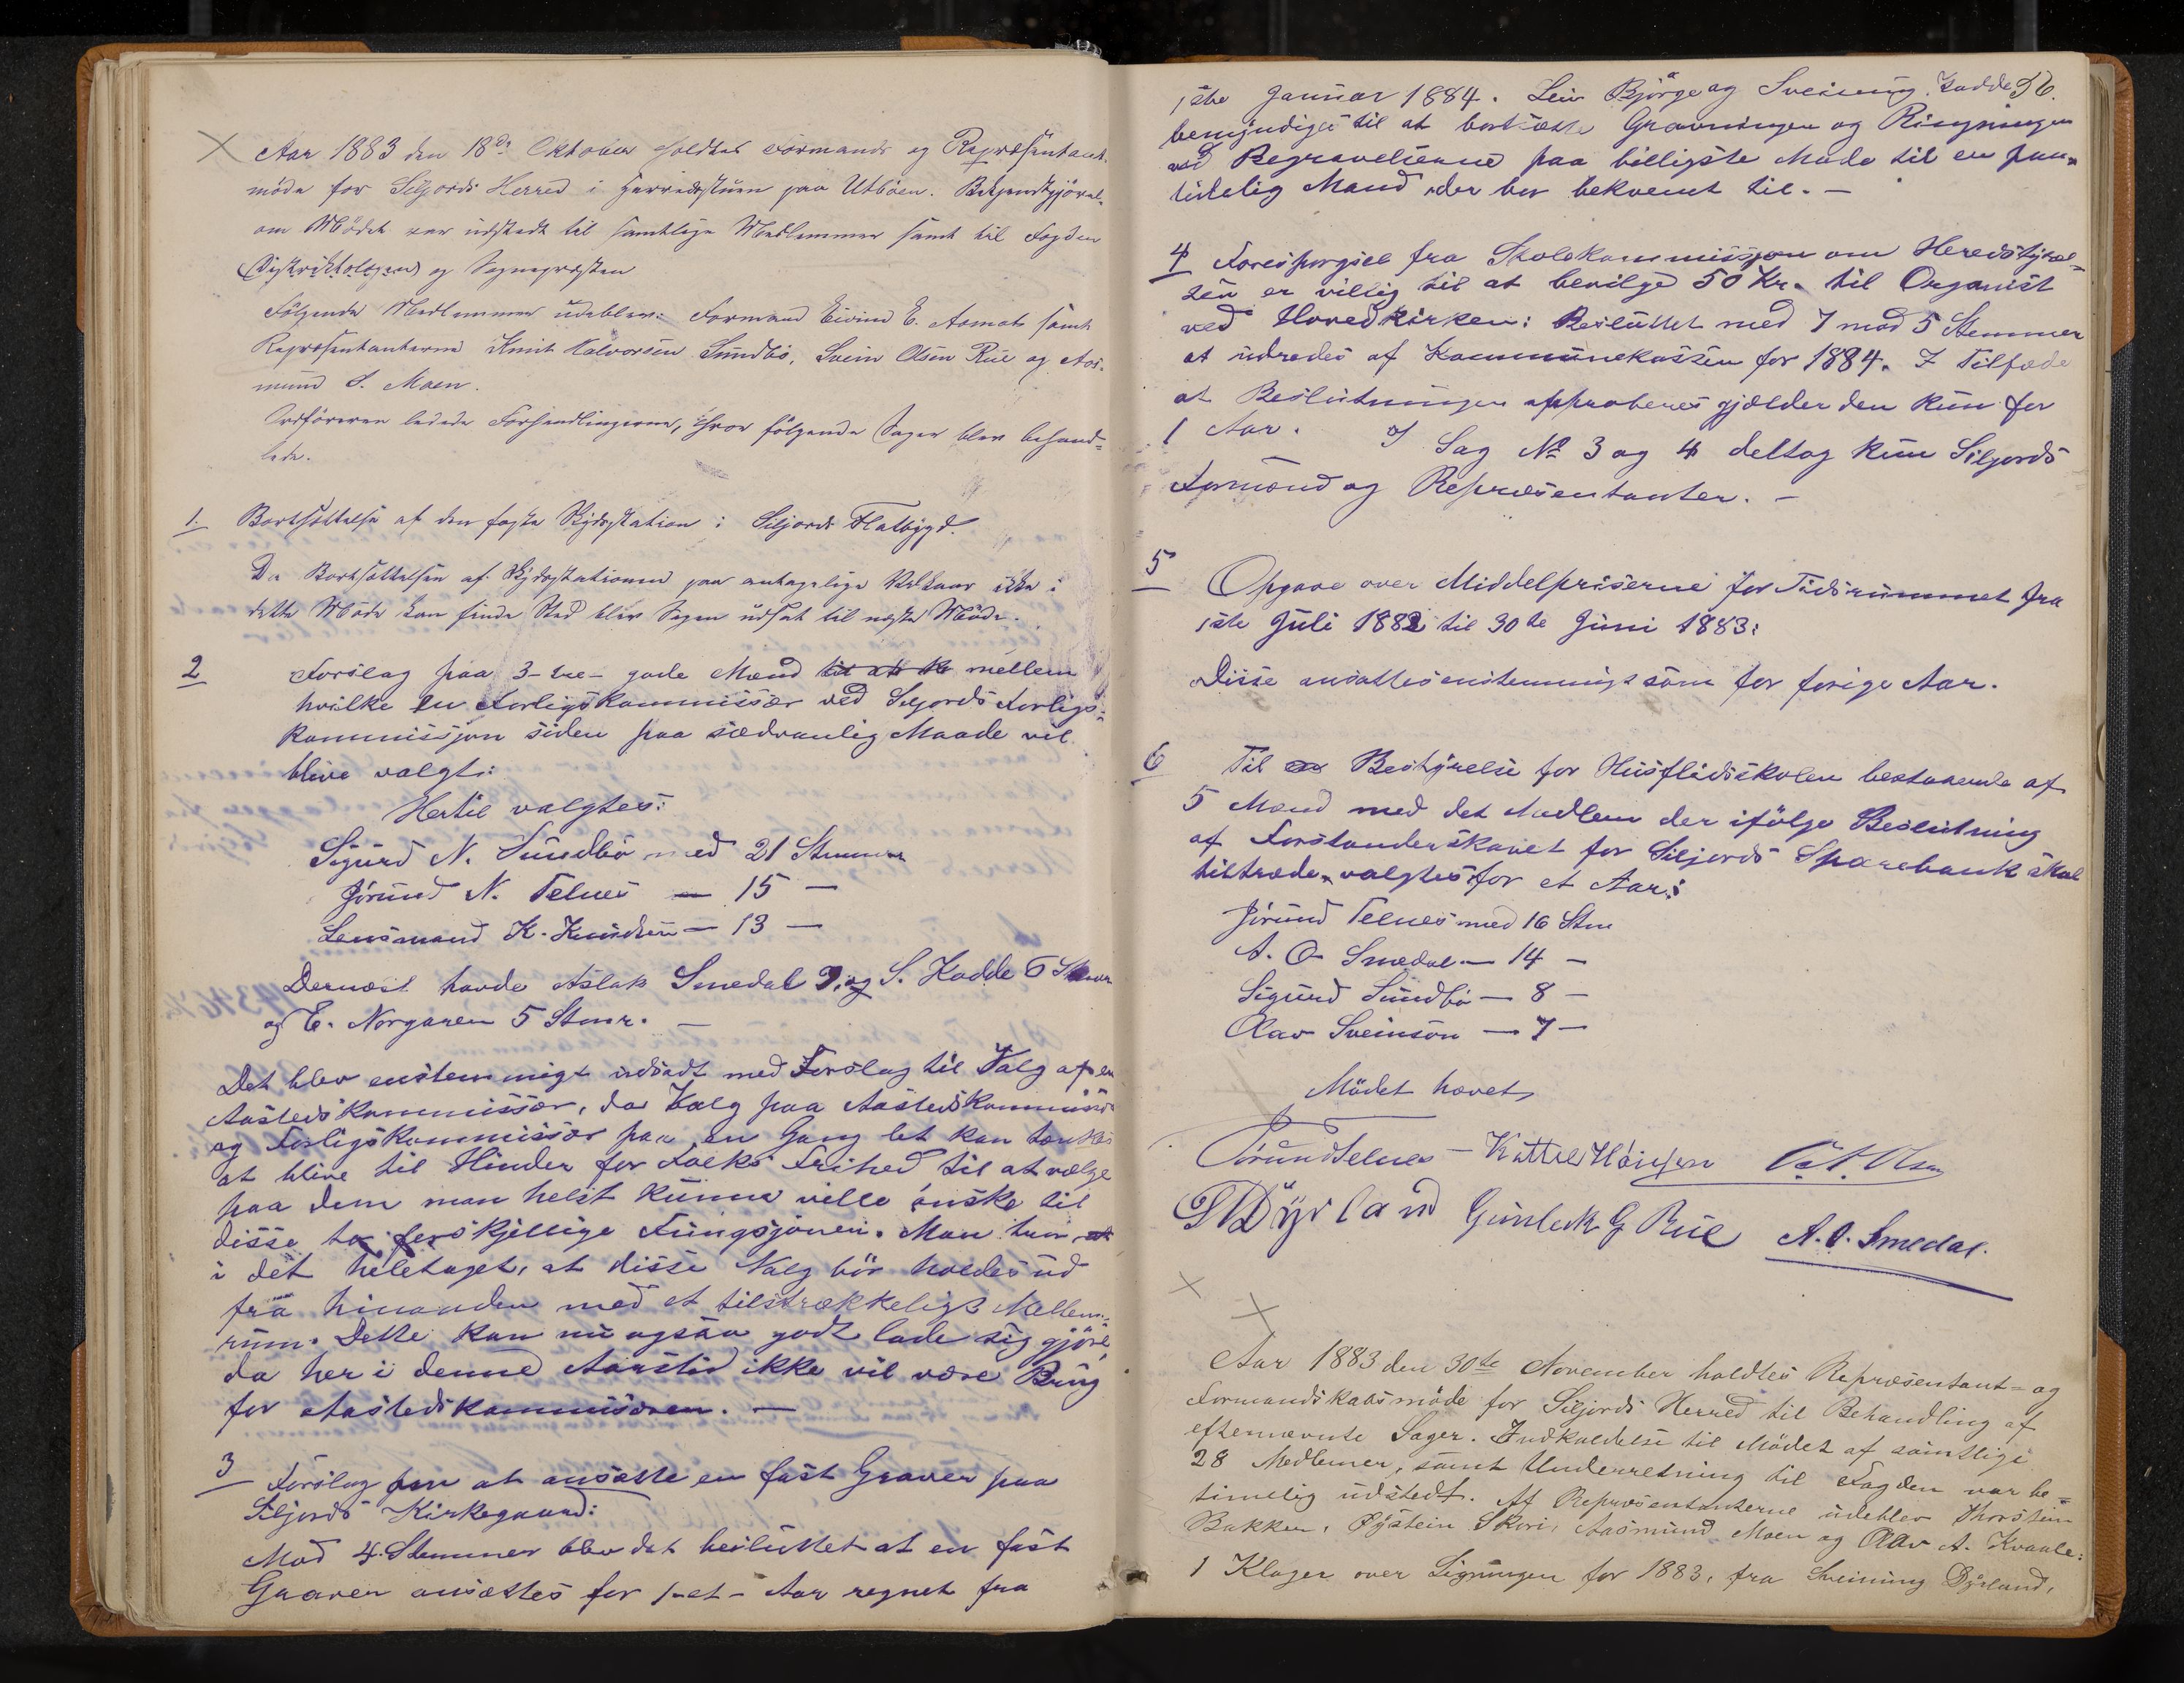 Aar 1883 den 18de Oktober holdtes Formands og Repræsentant-
möde for Siljords Herred i Herredsstuen paa Utböen. Bekjendtgjörelse
om Mödet var udstedt til samtlige Medlemmer samt til Fogden
(Distriktslægen) og Sognepresten
Fölgende Medlemmer udeblev: Formand Eivind E. Aamot samt
Repræsentanterne Knut Halvorsen Sundbö, Svein Olsen Rue og Aas-
mund S. Moen.
Ordföreren ledede Forhandlingerne, hvor fölgende Sager blev behand=
lede.
1. Bortsættelse af den faste Skydsstation i Siljords Flatbygd.
Da Bortsættelsen af Skydsstationen paa antagelige Vilkaar ikke i
dette Möde kan finde Sted blev Sagen udsat til næste Möde.
2 Forslag paa 3-tre- gode Mænd til at mellem
hvilke en Forligskommissær ved Seljords Forligs=
kommissjon siden paa sædvanlig Maade vil
blive valgt:
Hertil valgtes:
Sigurd N. Sundbö med 21 Stemmer
Jörund N. Telnes — 15 —
Lensmand K. Knudsen — 13 —
Dernæst havde Aslak Smedal 9, og S. Kodde 6 Stemmer
og E. Norgaren 5 Stmr. —
Det blev enstemmigt udsadt med Forslag til Valg af en
Aastedskommissær, da Valg paa Aastedskommissær
og Forligskommissær paa en Gang let kan tænkes
at blive til Hinder for Folks Frihed til at vælge
paa dem man helst kunne ville önske til
disse to forskjellige Fungsjoner. Man tror
i det heletaget, at disse Valg bör holdes ud
fra hinanden med et tilstrækkeligt Mellem-
rum. Dette kan nu ogsaa godt lade sig gjöre,
da her i denne Aarstid ikke vil være Brug
for Aastedskommisæren. —
3 Forslag om at ansætte en fast Graver paa
Siljords Kirkegaard:
Mod 4 Stemmer blev det besluttet at en fast
Graver ansættes for 1-et- Aar regnet fra
56.
1ste Januar 1884. Leiv Björge og Sveinung Kodde
bemyndiges til at bortsætte Gravningen og Ringningen
ved Begravelserne paa billigste Maade til en paa-
lidelig Mand der bor bekvemt til. —
4 Forespörgsel fra Skolekommissjon om Heredstyrel=
sen er villig til at bevilge 50 Kr. til Organist
ved Hovedkirken: Besluttet med 7 mod 5 Stemmer
at udredes af Kommunekassen for 1884. I Tilfælde
at Beslutningen approberes gjælder den kun for
1 Aar. I Sag No 3 og 4 deltog kun Siljords
Formænd og Repræsentanter. —
5 Opgave over Middelpriserne for Tidsrummet fra
1ste Juli 1882 til 30te Juni 1883:
Disse ansattes enstemmigt som for forige Aar.
6 Til Bestyrelse for Husflidsskolen bestaaende af
5 Mænd med det Medlem der ifölge Beslutning
af Forstanderskabet for Siljords Sparebank skal
tiltræde, valgtes for et Aar:
Jörund Telnes med 16 Stm
A. O. Smedal — 14 —
Sigurd Sundbö — 8 —
Olav Sveinson — 7 —
Mödet hævet
Jörund Telnes — Kittel Høisæn O. A. Olsen
S Dyrland Gunleik G Rue A. O. Smedal.
Aar 1883 den 30te November holdtes Repræsentant- og
Formandskabsmöde for Siljords Herred til Behandling af
efternævnte Sager. Indkaldelse til Mödet af samtlige
28 Medlemer, samt Underretning til Fogden var be=
timelig udstedt. Af Repræsentanterne udeblev Thorstein
Bakken, Øystein Skori, Aasmund Moen og Olav A. Kvaale:
1 Klager over Ligningen for 1883, fra Sveinung Dyrland,